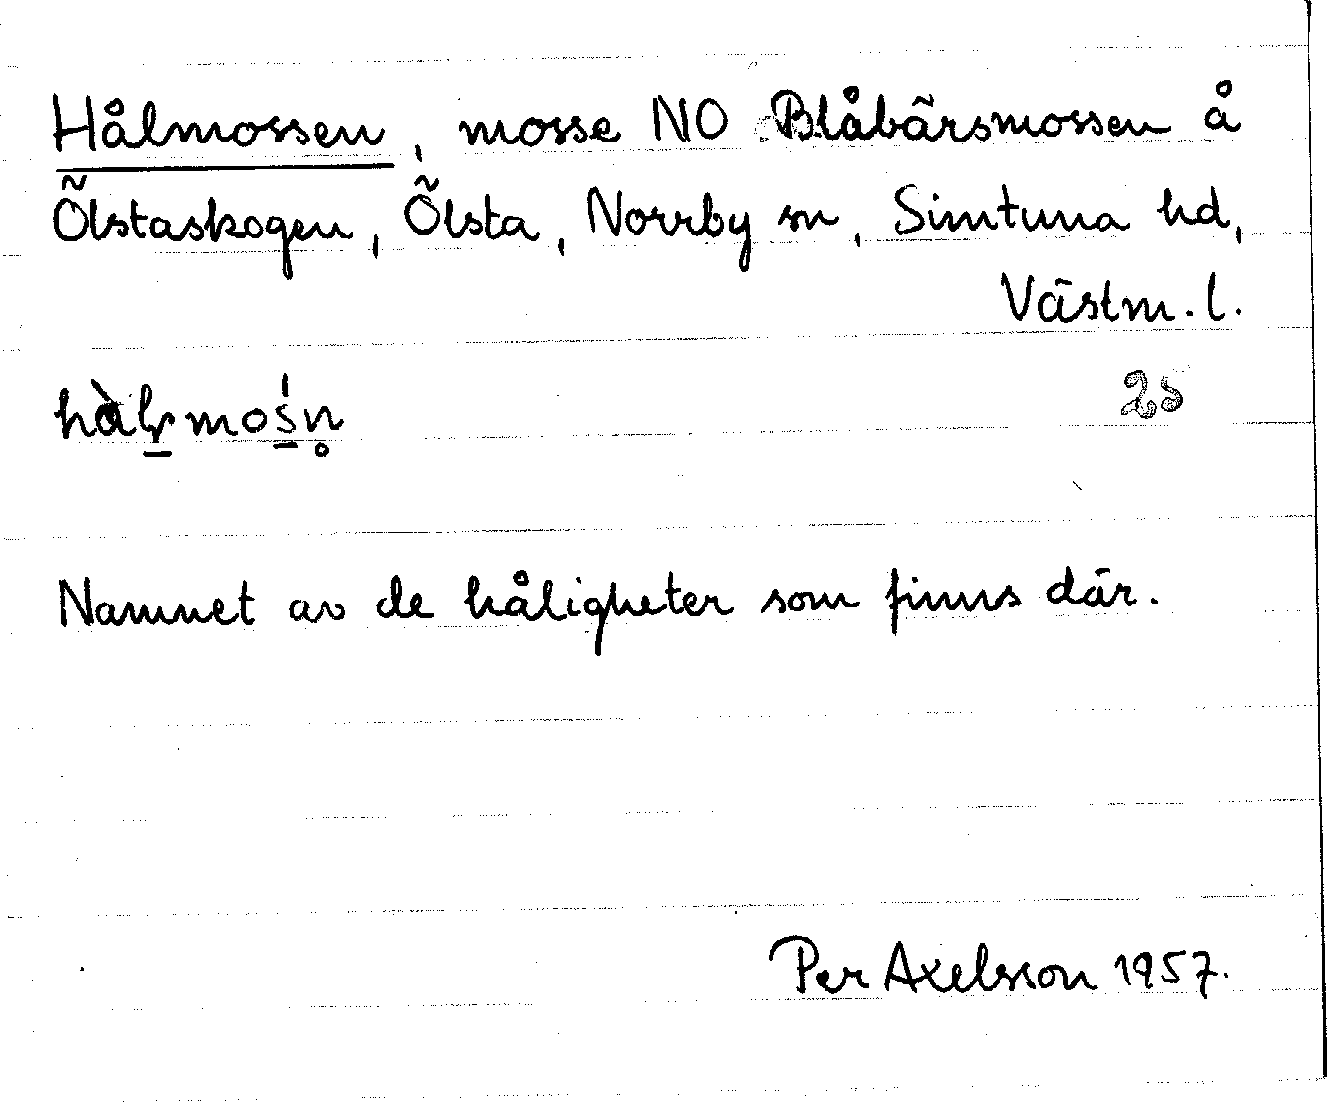 Hålmossen, mosse NO Blåbärsmossen å
Ölstaskogen, Ölsta, Norrby sn, Simtuna hd,
Västm. l.
25
Namnet av de håligheter som finns där.
Per Axelsson 1957.